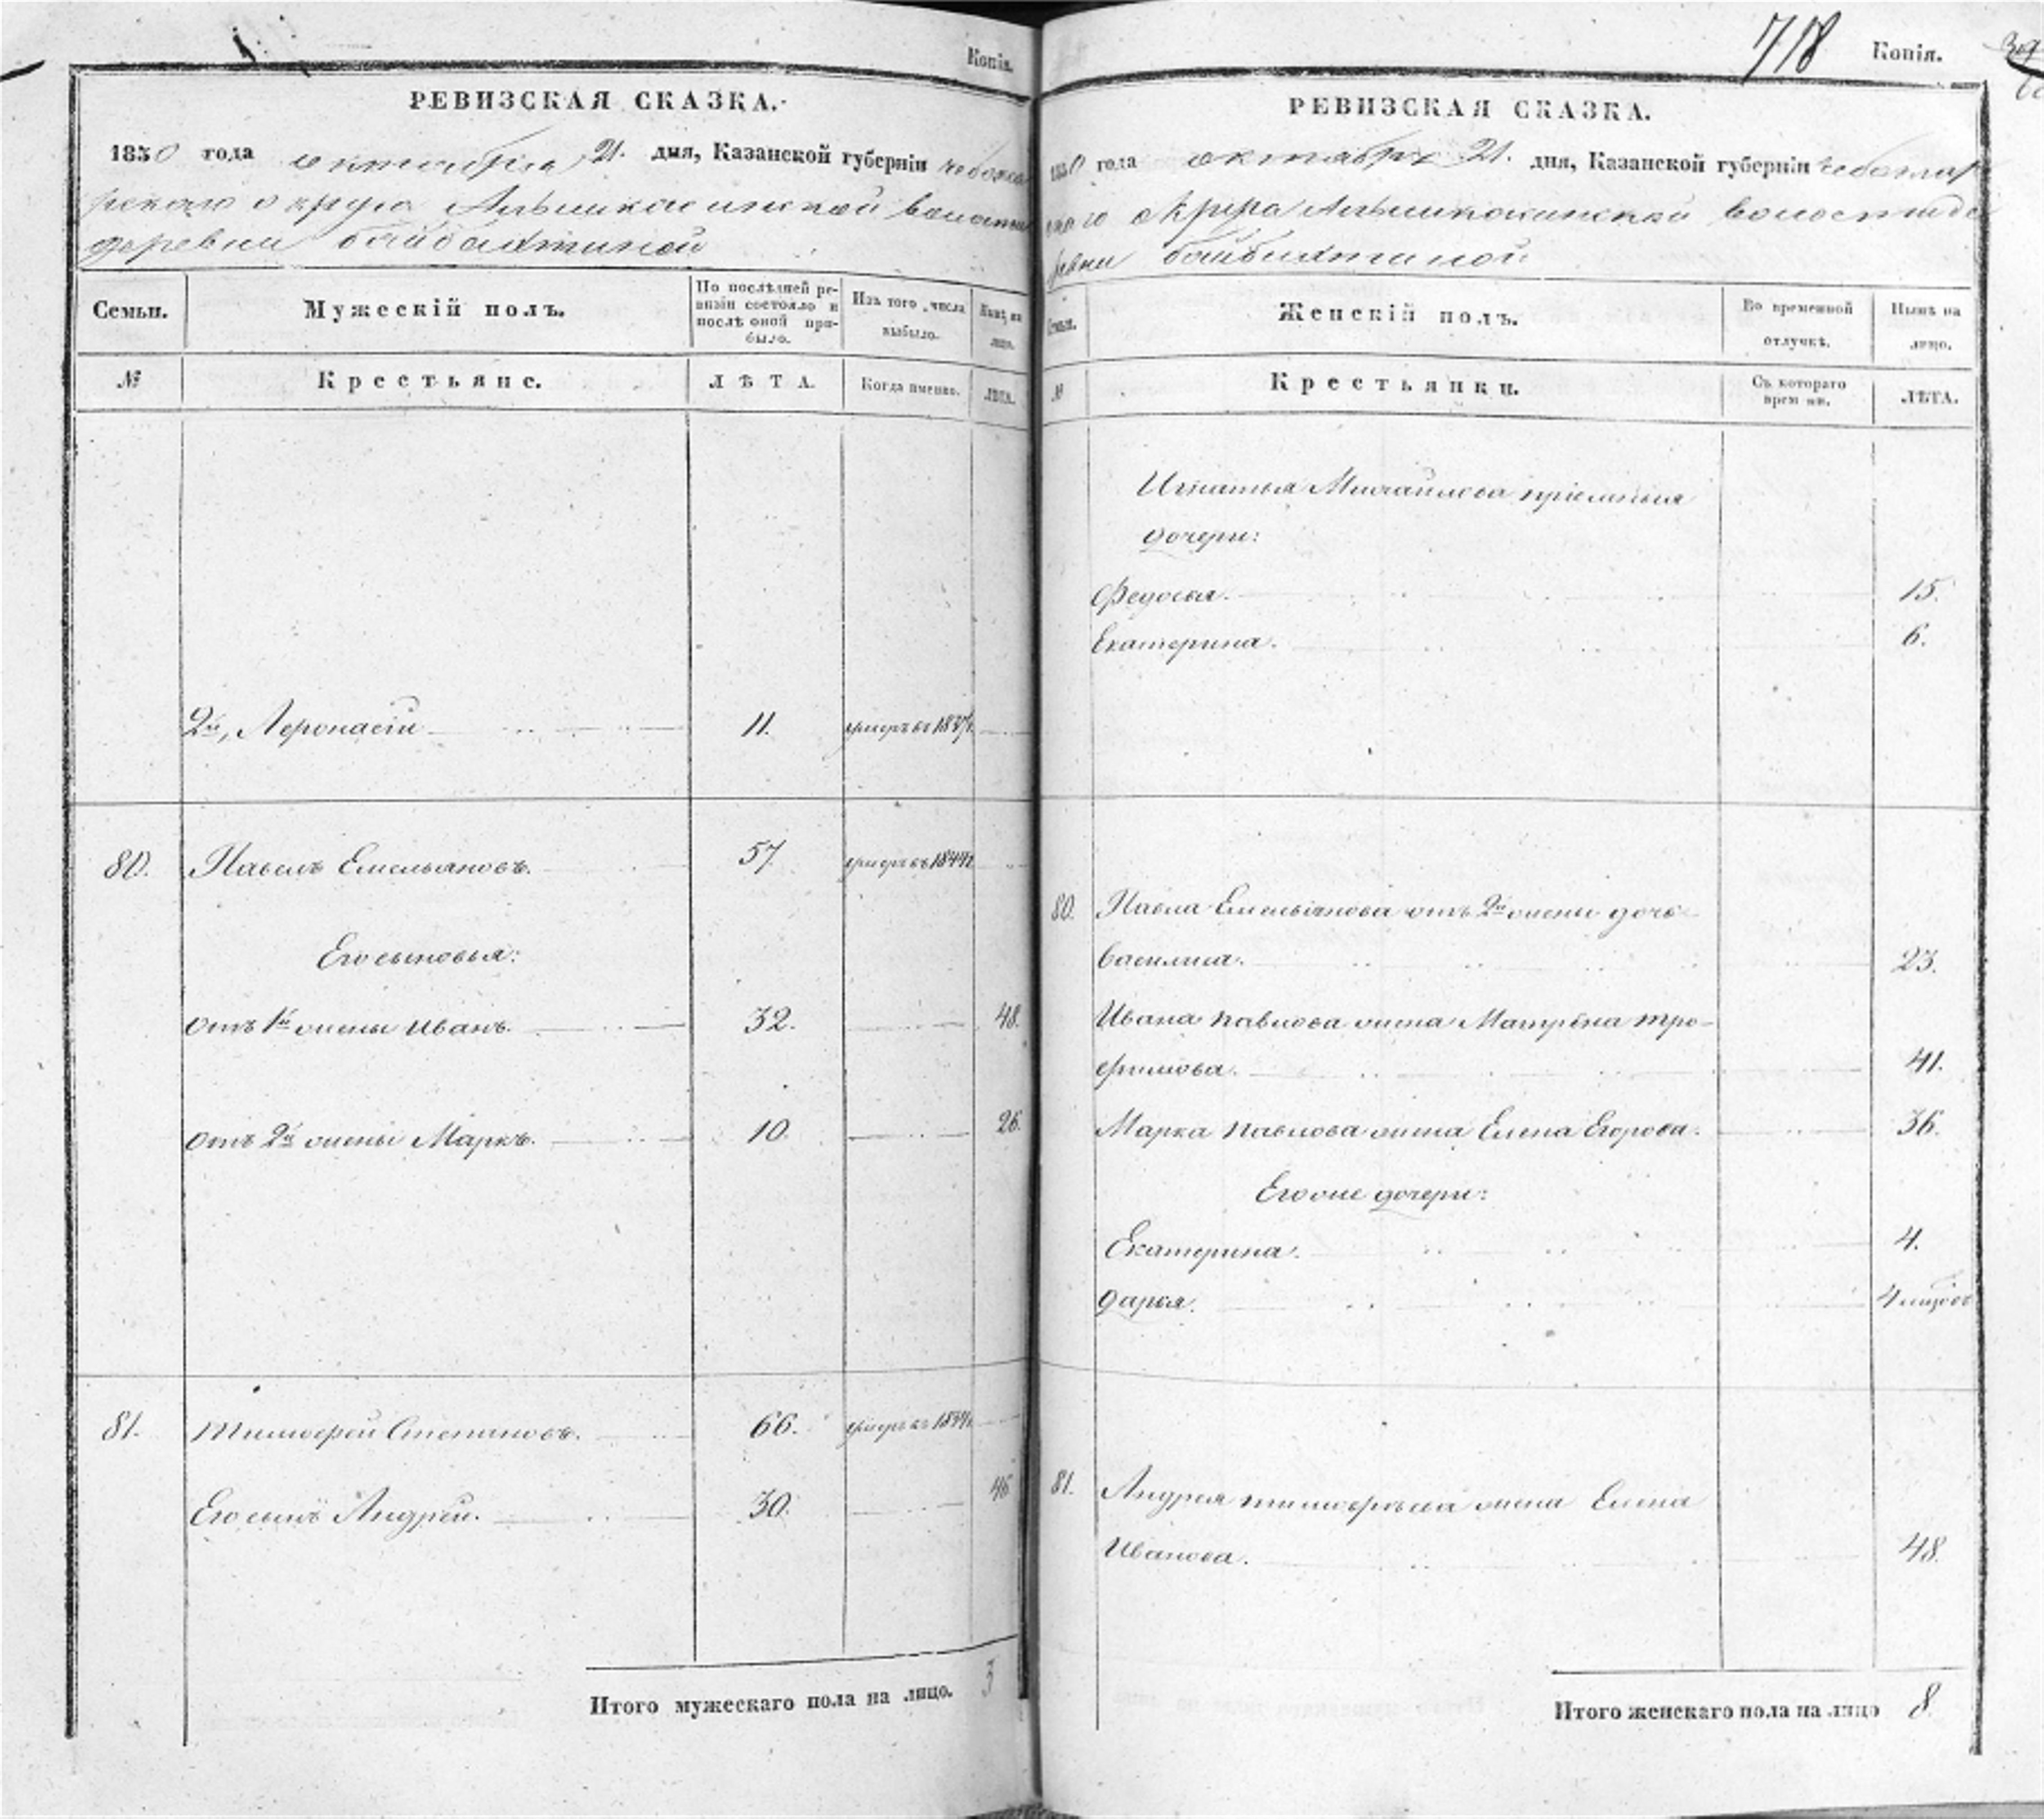 Копія.
РЕВИЗСКАЯ СКАЗКА.
1850 года октября 21. дня, Казанской губерніи Чебокса
рскаго округа Алымкасинской волости
деревни Байбахтиной
Семьи.
Мужескій полъ.
По послѣдней ре-
визіи состояло и
послѣ оной при-
было.
Изъ того числа
выбыло.
Нынѣ на
лицо.
№
Крестьяне.
ЛѢТА.
Когда именно.
ЛѢТА.
2й, Афонасій 11.
80. Павелъ Емельяновъ. 57
Его сыновья:
отъ 1й жены Иванъ. 32. 48.
отъ 2й жены Маркъ. 10. 26.
81. Тимофей Степановъ. 66.
Его сынъ Андрей. 30. 46
Итого мужескаго пола на лицо. 3
718
Копія.
РЕВИЗСКАЯ СКАЗКА.
1850 года октября 21. дня, Казанской губерніи Чебоксар
скаго округа Алымкасинской волости де
ревни Байбахтиной
Семьи.
Женскій полъ.
Во временной
отлучкѣ.
Нынѣ на
лицо.
№
Крестьянки.
Съ котораго
времени.
ЛѢТА.
Игнатья Михайлова пріемныя
дочери:
Федосья. 15.
Екатерина. 6.
80. Павла Емельянова отъ 2й жены дочь
Василиса. 23.
Ивана Павлова жена Матрена Тро-
фимова. 41.
Марка Павлова жена Елена Егорова. 36.
Его же дочери:
Екатерина. 4.
Дарья. 4
81. Андрея Тимофѣева жена Елена
Иванова. 48.
Итого женскаго пола на лицо 8.